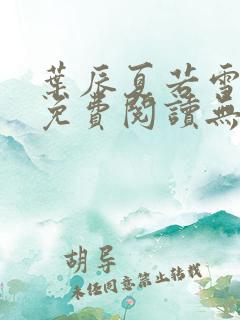 葉辰夏若雪
免費閱讀無
胡导
未经同意禁止转载